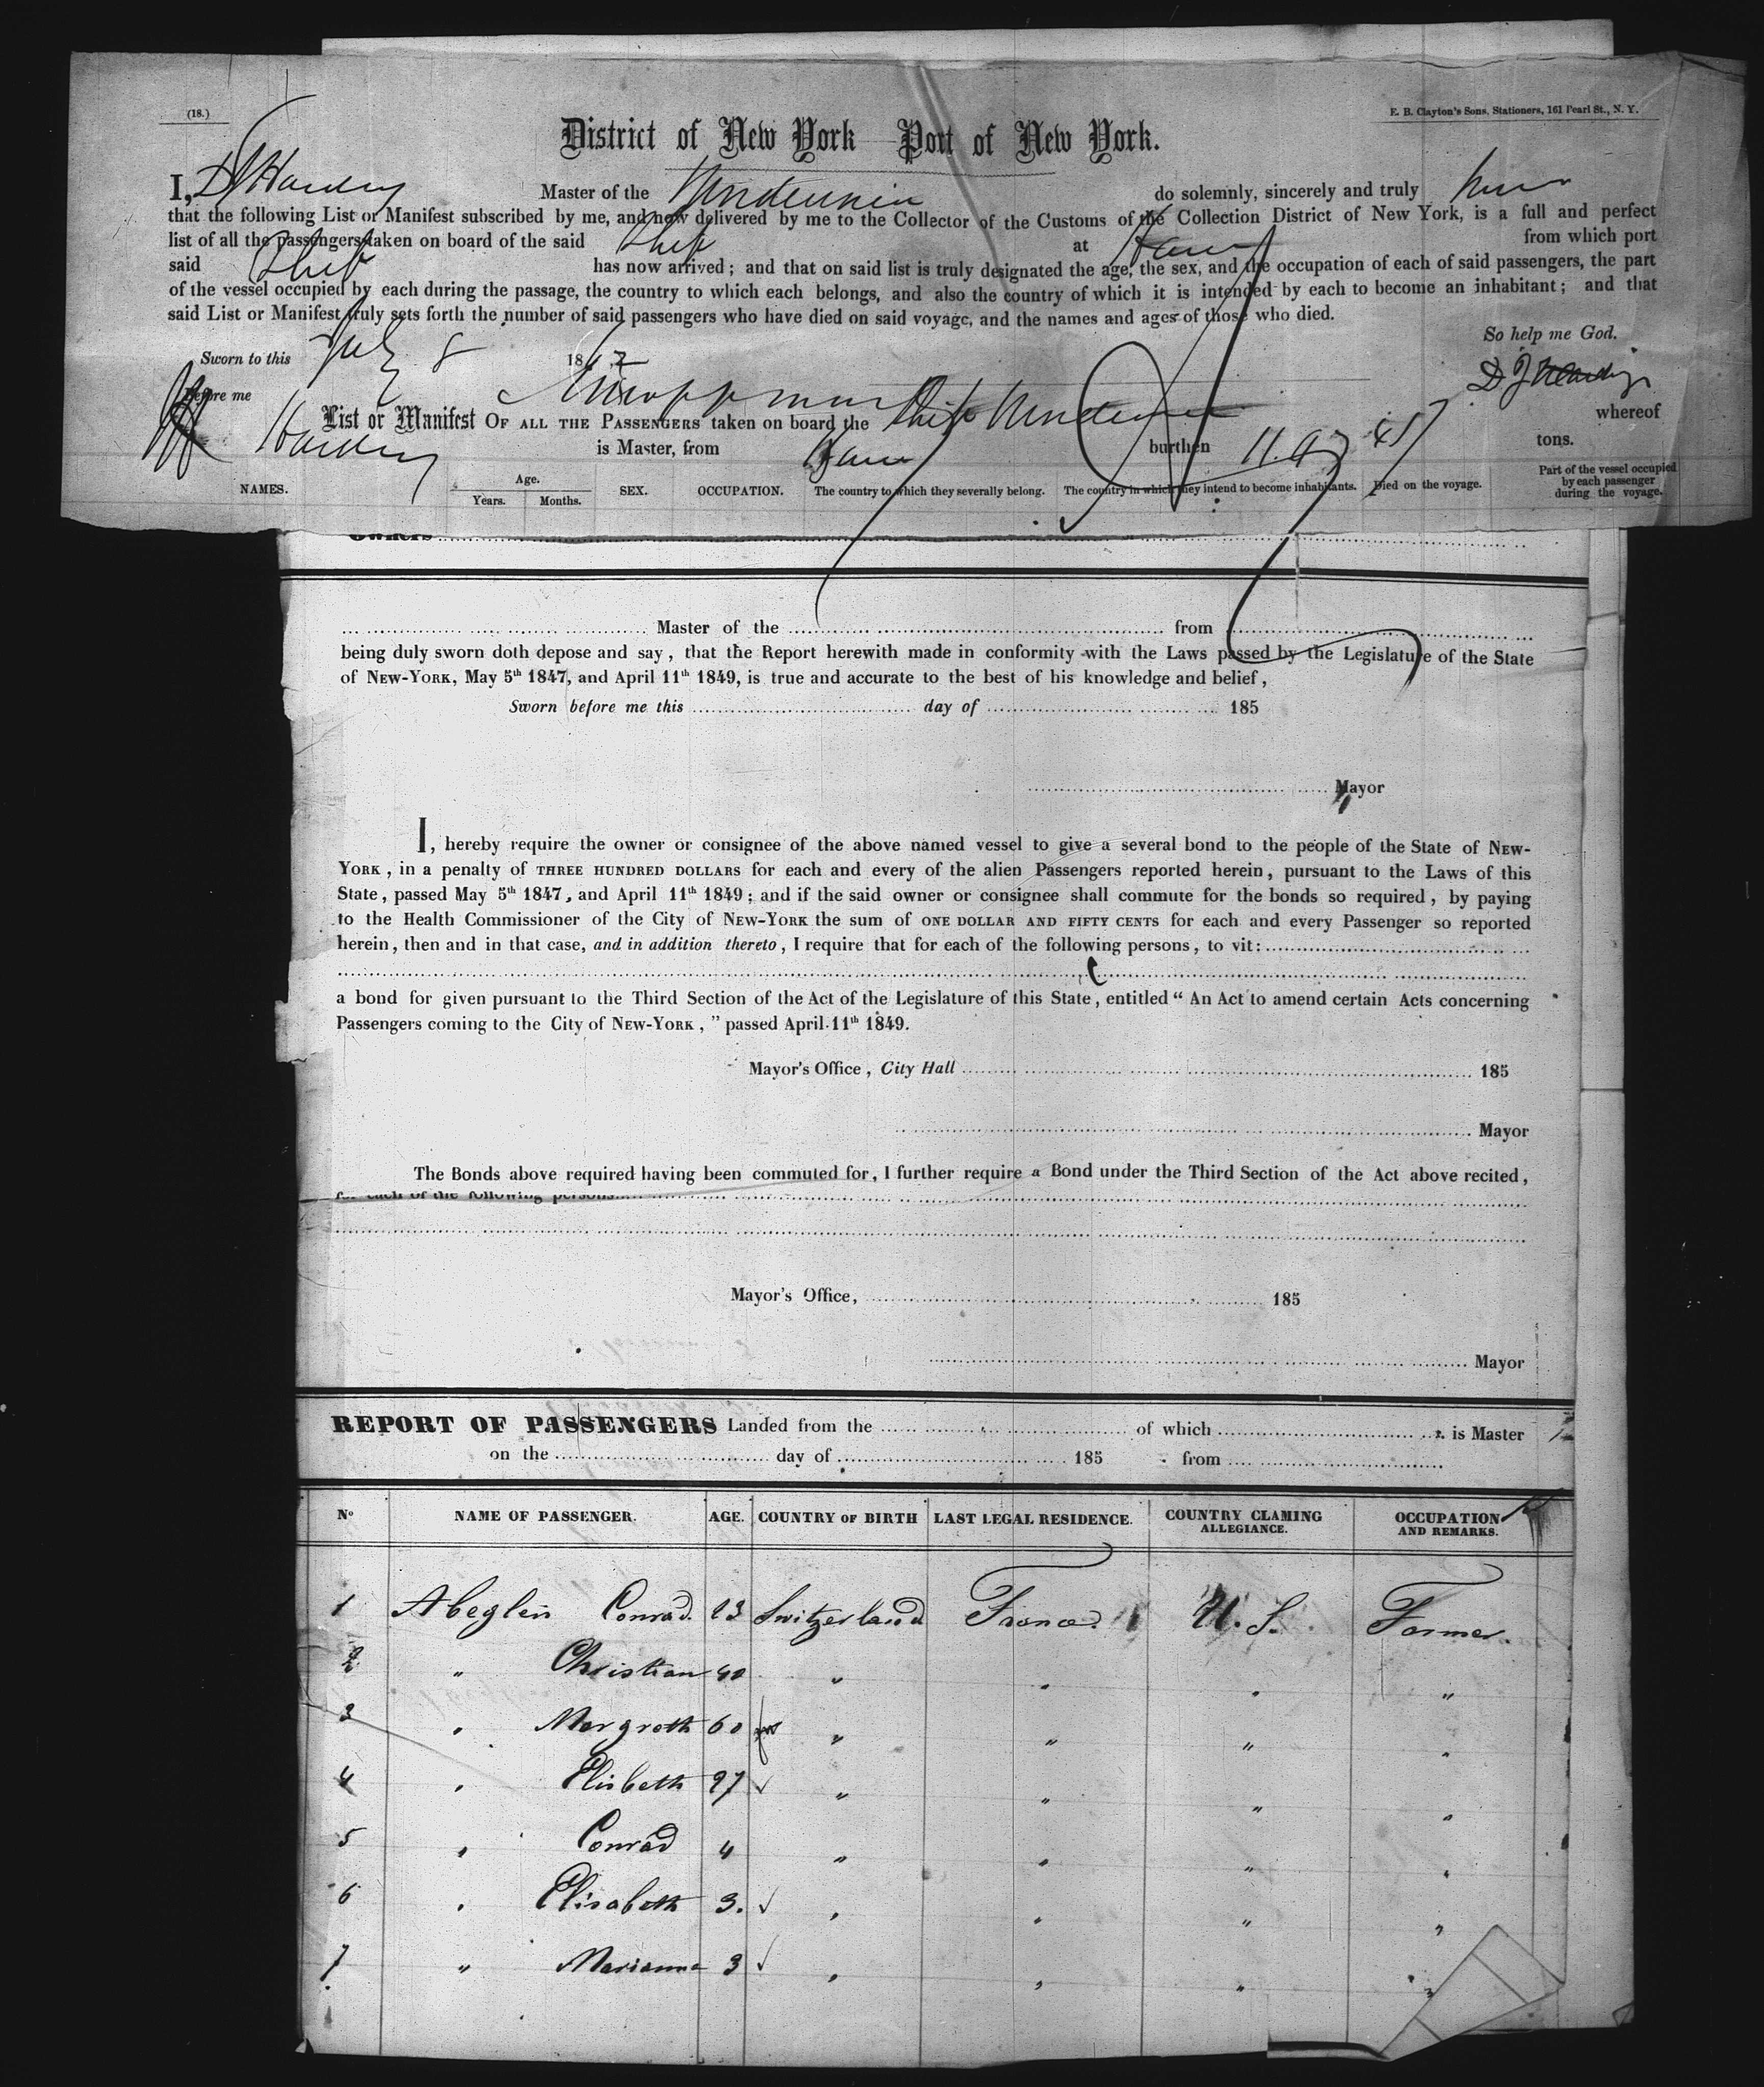 (18.)
E. B. Clayton's Sons, Stationers, 161 Pearl St., N. Y.
District of New York Port of New York.
I, Master of the do solemnly, sincerely and truly
that the following List or Manifest subscribed by me, and now delivered by me to the Collector of the Customs of the Collection District of New York, is a full and perfect
list of all the passengers taken on board of the said Ship at Havre from which port
said Ship has now arrived; and that on said list is truly designated the age, the sex, and the occupation of each of said passengers, the part
of the vessel occupied by each during the passage, the country to which each belongs, and also the country of which it is intended by each to become an inhabitant; and that
said List or Manifest truly sets forth the number of said passengers who have died on said voyage, and the names and ages of those who died.
So help me God.
Sworn to this July 8 1862
Before me
List or Manifest OF ALL THE PASSENGERS taken on board the Ship whereof
is Master, from Havre burthen tons.
NAMES. Age. Years. Months. SEX. OCCUPATION. The country to which they severally belong. The country in which they intend to become inhabitants. Died on the voyage. Part of the vessel occupied by each passenger during the voyage.
Owners
Master of the from
being duly sworn doth depose and say, that the Report herewith made in conformity with the Laws passed by the Legislature of the State
of NEW-YORK, May 5th 1847, and April 11th 1849, is true and accurate to the best of his knowledge and belief,
Sworn before me this day of 185
Mayor
I, hereby require the owner or consignee of the above named vessel to give a several bond to the people of the State of NEW-
YORK, in a penalty of THREE HUNDRED DOLLARS for each and every of the alien Passengers reported herein, pursuant to the Laws of this
State, passed May 5th 1847, and April 11th 1849; and if the said owner or consignee shall commute for the bonds so required, by paying
to the Health Commissioner of the City of NEW-YORK the sum of ONE DOLLAR AND FIFTY CENTS for each and every Passenger so reported
herein, then and in that case, and in addition thereto, I require that for each of the following persons, to vit:
a bond for given pursuant to the Third Section of the Act of the Legislature of this State, entitled "An Act to amend certain Acts concerning
Passengers coming to the City of NEW-YORK," passed April 11th 1849.
Mayor's Office, City Hall 185
Mayor
The Bonds above required having been commuted for, I further require a Bond under the Third Section of the Act above recited,
for each of the following persons
Mayor's Office, 185
Mayor
REPORT OF PASSENGERS Landed from the of which is Master
on the day of 185 from
No NAME OF PASSENGER. AGE. COUNTRY OF BIRTH LAST LEGAL RESIDENCE. COUNTRY CLAMING ALLEGIANCE. OCCUPATION AND REMARKS.
1 Abeglen Conrad. 23 Switzerland France. U. S. Farmer.
2 " Christian 40 " " " "
3 " Margreth 60 " " " "
4 " Elisbeth 27 " " " "
5 " Conrad 4 " " " "
6 " Elisabeth 3. " " " "
7 " Marianne 3 " " " "